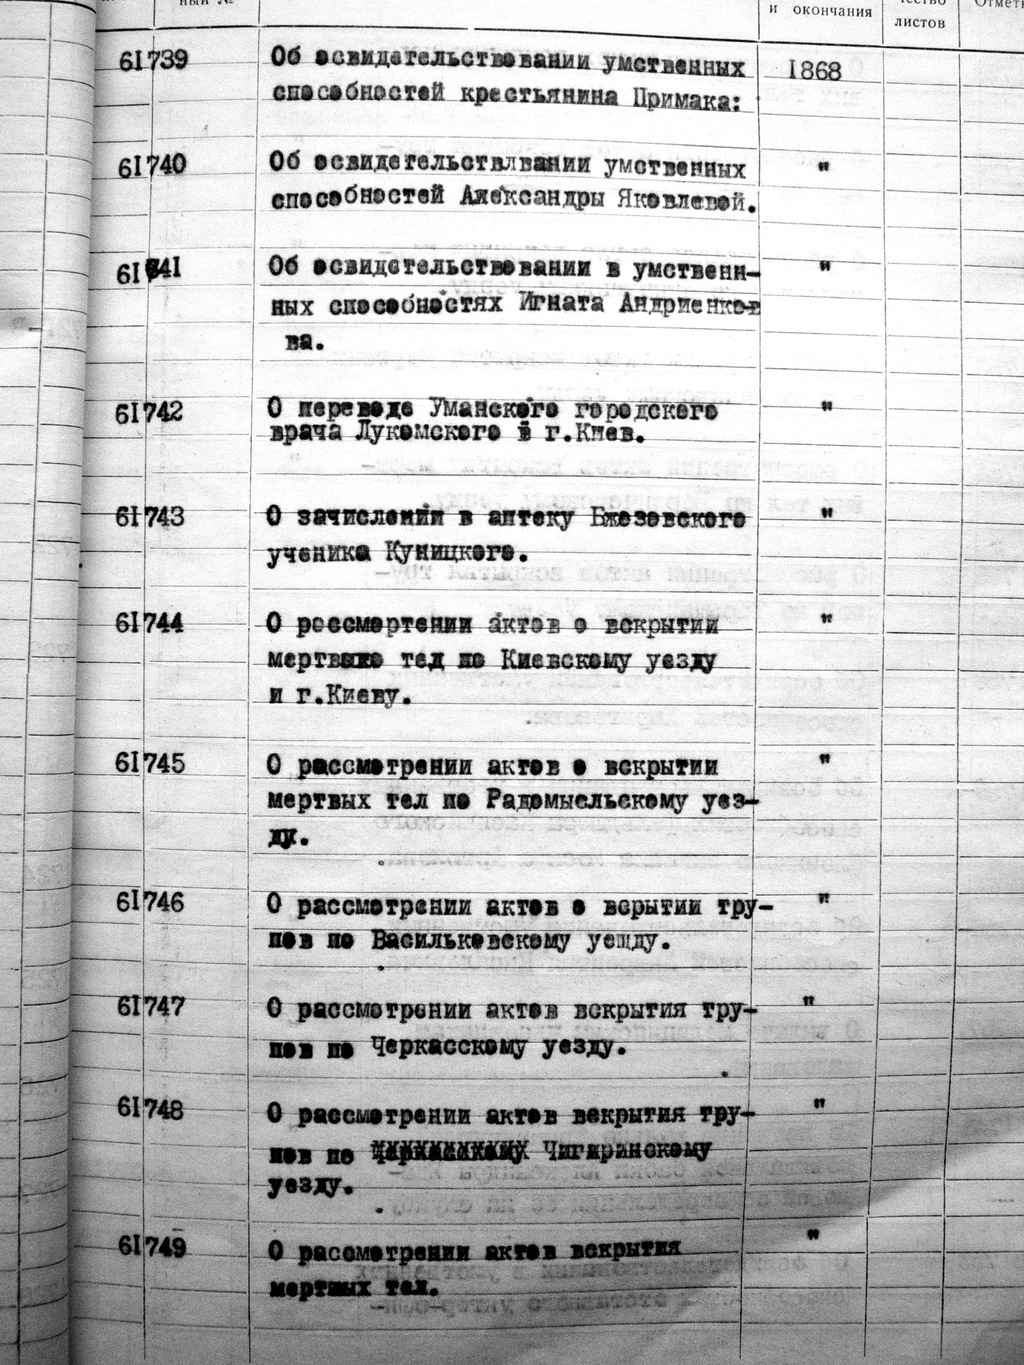 ный №
и окончания
чество
листов
Отметк
61739 Об освидетельствовании умственных 1868
способностей крестьянина Примака:
61740 Об освидетельствлвании умственных "
способностей Александры Яковлевой.
61641 Об освидетельствовании в умственн- "
ных способностях Игната Андриенков
ва.
61742 О переводе Уманского городского "
врача Лукомского в г.Киев.
61743 О зачислении в аптеку Бжезовского "
ученика Куницкого.
61744 О россмертении актов о вскрытии "
мертвыхо тед по Киевскому уезду
и г.Киеву.
61745 О рассмотрении актов о вскрытии "
мертвых тел по Радомысльскому уез-
ду.
61746 О рассмотрении актов о всрытии тру- "
пов по Васильковскому уещду.
61747 О рассмотрении актов вскрытия тру- "
пов по Черкасскому уезду.
61748 О рассмотрении актов вскрытия тру- "
пов по Чигиринскому
уезду.
61749 О рассмотрении актов вскрытия "
мертвых тел.